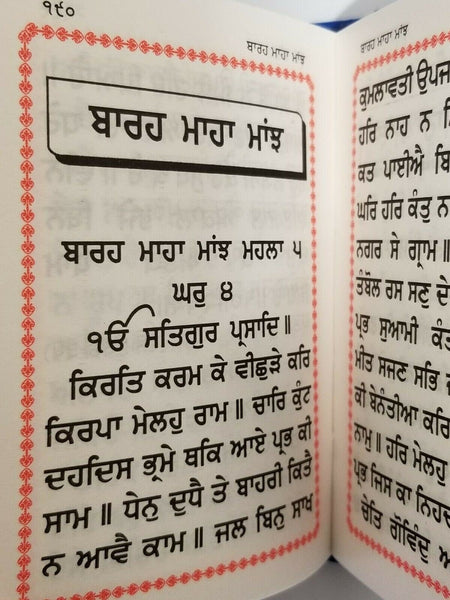 ੧੯੦
ਬਾਰਹ ਮਾਹਾ ਮਾਂਝ
ਬਾਰਹ ਮਾਹਾ ਮਾਂਝ
ਬਾਰਹ ਮਾਹਾ ਮਾਂਝ ਮਹਲਾ ੫
ਘਰੁ ੪
ੴ ਸਤਿਗੁਰ ਪ੍ਰਸਾਦਿ॥
ਕਿਰਤਿ ਕਰਮ ਕੇ ਵੀਛੁੜੇ ਕਰਿ
ਕਿਰਪਾ ਮੇਲਹੁ ਰਾਮ॥ ਚਾਰਿ ਕੁੰਟ
ਦਹਦਿਸ ਭ੍ਰਮੇ ਥਕਿ ਆਏ ਪ੍ਰਭ ਕੀ
ਸਾਮ॥ ਧੇਨੁ ਦੁਧੈ ਤੇ ਬਾਹਰੀ ਕਿਤੈ
ਨ ਆਵੈ ਕਾਮ॥ ਜਲ ਬਿਨੁ ਸਾਖ
ਬਾਰਹ ਮਾਹਾ ਮਾਂਝ
ਕੁਮਲਾਵਤੀ ਉਪਜ
ਹਰਿ ਨਾਹ ਨ
ਕਤ ਪਾਈਐ ਬਿ
ਘਰਿ ਹਰਿ ਕੰਤੁ ਨ
ਨਗਰ ਸੇ ਗ੍ਰਾਮ॥
ਤੰਬੋਲ ਰਸ ਸਣੁ ਦੇ
ਪ੍ਰਭ ਸੁਆਮੀ ਕੰਤ
ਮੀਤ ਸਜਣ ਸਭਿ
ਕੀ ਬੇਨੰਤੀਆ ਕਰਿ
ਨਾਮੁ॥ ਹਰਿ ਮੇਲਹੁ
ਪ੍ਰਭ ਜਿਸ ਕਾ ਨਿਹਚ
ਚੇਤਿ ਗੋਵਿੰਦੁ ਅ